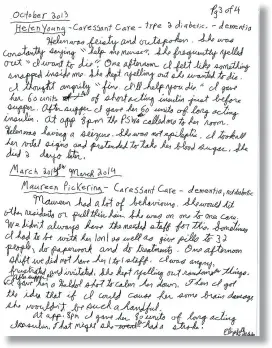 P.3 of 4
October 2013
Helen Young - Caressant Care - type 2 diabetic - dementia
Helen was feisty and outspoken. She was
constantly saying "help me nurse". She frequently yelled
out "I want to die". One afternoon I felt like something
snapped inside me. She kept yelling out she wanted to die.
I thought angrily "fine I'll help you die" I gave
her 60 units of short acting insulin just before
supper. After supper I gave her 60 units of long acting
insulin. At app 8pm the PSWs called me to her room.
Helen was having a seizure. She was not epileptic. I took all
her vital signs and pretended to take her blood sugar. She
died 2 days later.
March 2014
Maureen Pickering - Caressant Care - dementia, not diabetic
Maureen had a lot of behaviours. She would hit
other residents or pull their hair. She was on one to one care.
We didn't always have the needed staff for this. Sometimes
I had to be with her 1on1 as well as give pills to 32
people, do paperwork and do treatments. One afternoon
shift we did not have her 1 to 1 staff. I was angry,
frustrated and irritated. She kept yelling out random things.
I gave her a Haldol shot to calm her down. Then I got
the idea that if I could cause her some brain damage
she wouldn't be such a handful.
At app. 8pm I gave her 80 units of long acting
insulin. That night she had a stroke.